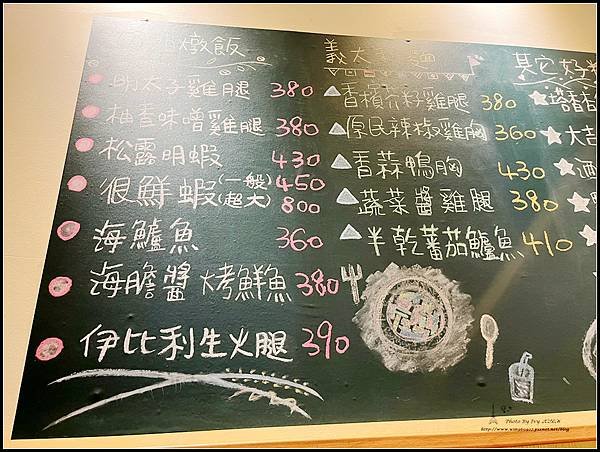 燉飯
明太子雞腿 380
柚香味噌雞腿 380
松露明蝦 430
很鮮蝦(一般) 450
(超大) 800
海鱸魚 360
海膽醬烤鮮魚 380
伊比利生火腿 390
義大
香檳芥籽雞腿 380
原民辣椒雞胸 360
香蒜鴨胸 430
蔬菜醬雞腿 380
半乾蕃茄鱸魚 410
其它好
塔香
大吉
酒
Photo By Ivy